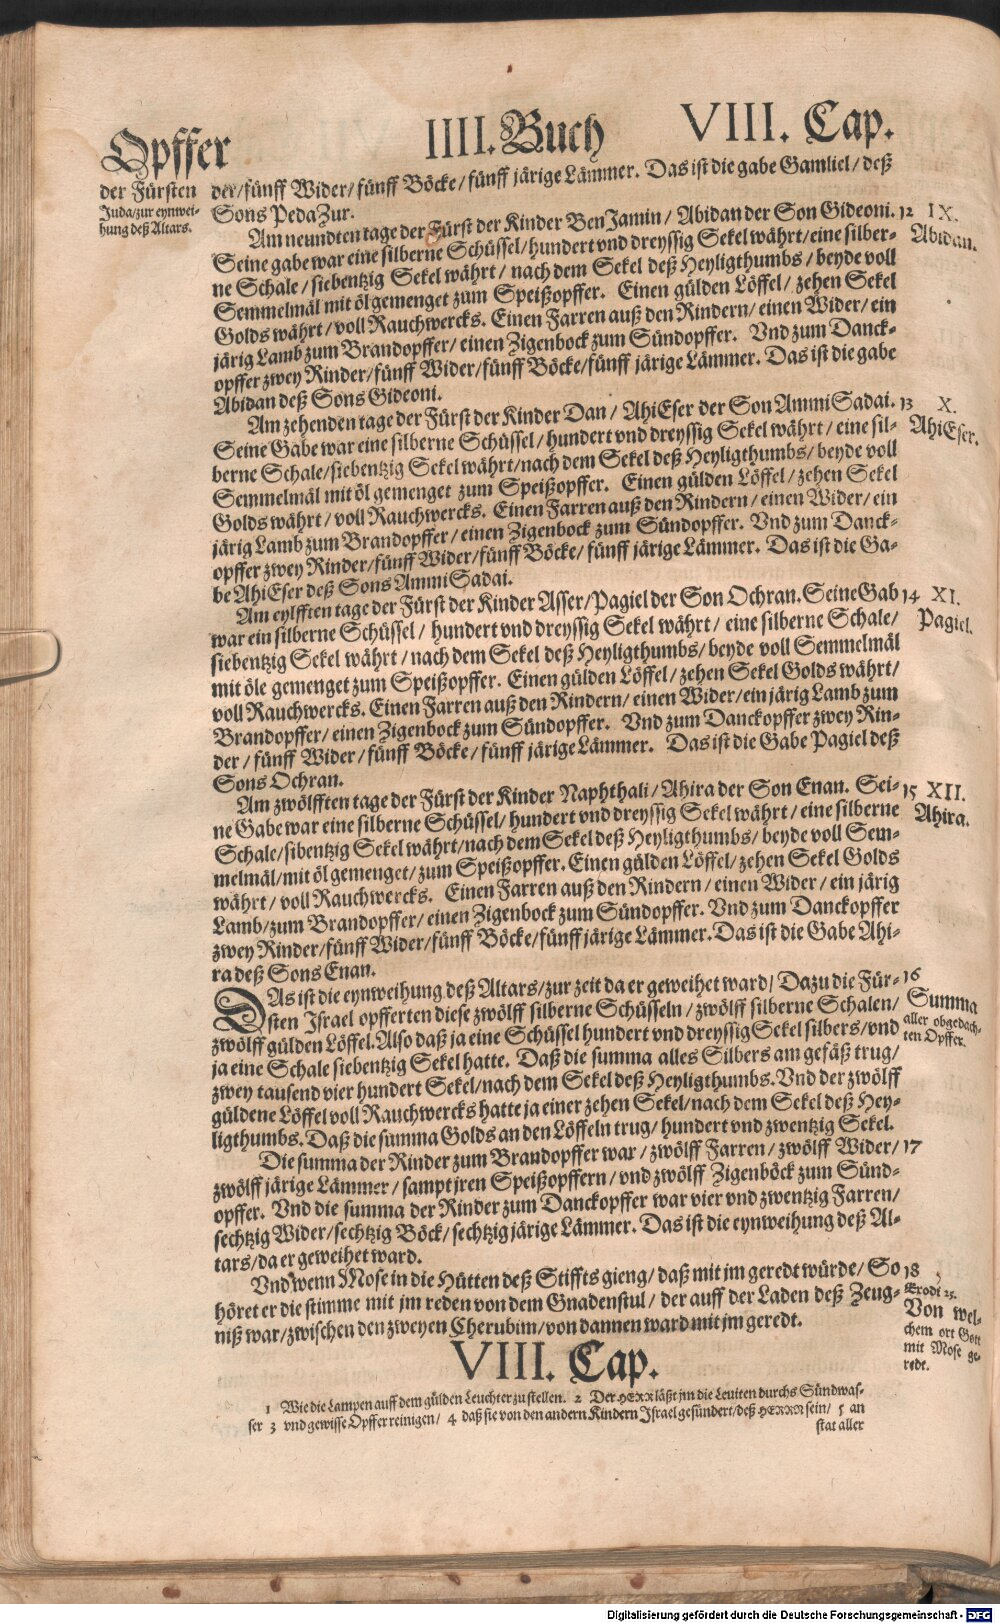 Opffer IIII. Buch VIII. Cap.
der Fürsten
Juda/zur eynwei-
hung deß Altars.
der/fünff Wider/fünff Böcke/fünff järige Lämmer. Das ist die gabe Gamliel/deß
Sons PedaZur.
Am neundten tage der Fürst der Kinder BenJamin/Abidan der Son Gideoni. 12 IX.
Abidan.
Seine gabe war eine silberne Schüssel/hundert vnd dreyssig Sekel währt/eine silber-
ne Schale/siebentzig Sekel währt/nach dem Sekel deß Heyligthumbs/beyde voll
Semmelmäl mit öl gemenget zum Speißopffer. Einen gülden Löffel/zehen Sekel
Golds währt/voll Rauchwercks. Einen Farren auß den Rindern/einen Wider/ein
järig Lamb zum Brandopffer/einen Zigenbock zum Sündopffer. Vnd zum Danck-
opffer zwey Rinder/fünff Wider/fünff Böcke/fünff järige Lämmer. Das ist die gabe
Abidan deß Sons Gideoni.
Am zehenden tage der Fürst der Kinder Dan/AhiEser der Son AmmiSadai. 13 X.
AhiEser.
Seine Gabe war eine silberne Schüssel/hundert vnd dreyssig Sekel währt/eine sil-
berne Schale/siebentzig Sekel währt/nach dem Sekel deß Heyligthumbs/beyde voll
Semmelmäl mit öl gemenget zum Speißopffer. Einen gülden Löffel/zehen Sekel
Golds währt/voll Rauchwercks. Einen Farren auß den Rindern/einen Wider/ein
järig Lamb zum Brandopffer/einen Zigenbock zum Sündopffer. Vnd zum Danck-
opffer zwey Rinder/fünff Wider/fünff Böcke/fünff järige Lämmer. Das ist die Ga-
be AhiEser deß Sons AmmiSadai.
Am eylfften tage der Fürst der Kinder Asser/Pagiel der Son Ochran. Seine Gab 14 XI.
Pagiel.
war ein silberne Schüssel/hundert vnd dreyssig Sekel währt/eine silberne Schale/
siebentzig Sekel währt/nach dem Sekel deß Heyligthumbs/beyde voll Semmelmäl
mit öle gemenget zum Speißopffer. Einen gülden Löffel/zehen Sekel Golds währt/
voll Rauchwercks. Einen Farren auß den Rindern/einen Wider/ein järig Lamb zum
Brandopffer/einen Zigenbock zum Sündopffer. Vnd zum Danckopffer zwey Rin-
der/fünff Wider/fünff Böcke/fünff järige Lämmer. Das ist die Gabe Pagiel deß
Sons Ochran.
Am zwölfften tage der Fürst der Kinder Naphthali/Ahira der Son Enan. Sei- 15 XII.
Ahira.
ne Gabe war eine silberne Schüssel/hundert vnd dreyssig Sekel währt/eine silberne
Schale/sibentzig Sekel währt/nach dem Sekel deß Heyligthumbs/beyde voll Sem-
melmäl/mit öl gemenget/zum Speißopffer. Einen gülden Löffel/zehen Sekel Golds
währt/voll Rauchwercks. Einen Farren auß den Rindern/einen Wider/ein järig
Lamb/zum Brandopffer/einen Zigenbock zum Sündopffer. Vnd zum Danckopffer
zwey Rinder/fünff Wider/fünff Böcke/fünff järige Lämmer. Das ist die Gabe Ahi-
ra deß Sons Enan.
DAs ist die eynweihung deß Altars/zur zeit da er geweihet ward/Dazu die Für- 16
Summa
aller obgedach-
ten Opffer.
sten Israel opfferten diese zwölff silberne Schüsseln/zwölff silberne Schalen/
zwölff gülden Löffel. Also daß ja eine Schüssel hundert vnd dreyssig Sekel silbers/vnd
ja eine Schale siebentzig Sekel hatte. Daß die summa alles Silbers am gefäß trug/
zwey tausend vier hundert Sekel/nach dem Sekel deß Heyligthumbs. Vnd der zwölff
güldene Löffel voll Rauchwercks hatte ja einer zehen Sekel/nach dem Sekel deß Hey-
ligthumbs. Daß die summa Golds an den Löffeln trug/hundert vnd zwentzig Sekel.
Die summa der Rinder zum Brandopffer war/zwölff Farren/zwölff Wider/ 17
zwölff järige Lämmer/sampt jren Speißopffern/vnd zwölff Zigenböck zum Sünd-
opffer. Vnd die summa der Rinder zum Danckopffer war vier vnd zwentzig Farren/
sechtzig Wider/sechtzig Böck/sechtzig järige Lämmer. Das ist die eynweihung deß Al-
tars/da er geweihet ward.
Vnd wenn Mose in die Hütten deß Stiffts gieng/daß mit jm geredt würde/So 18
Exodi 25.
Von wel-
chem ort Gott
mit Mose ge-
redt.
höret er die stimme mit jm reden von dem Gnadenstul/der auff der Laden deß Zeug-
niß war/zwischen den zweyen Cherubim/von dannen ward mit jm geredt.
VIII. Cap.
1 Wie die Lampen auff dem gülden Leuchter zu stellen. 2 Der HERR läßt jm die Leuiten durchs Sündwas-
ser 3 vnd gewisse Opffer reinigen/ 4 daß sie von den andern Kindern Israel gesündert/deß HERRN sein/ 5 an
stat aller
Digitalisierung gefördert durch die Deutsche Forschungsgemeinschaft - DFG